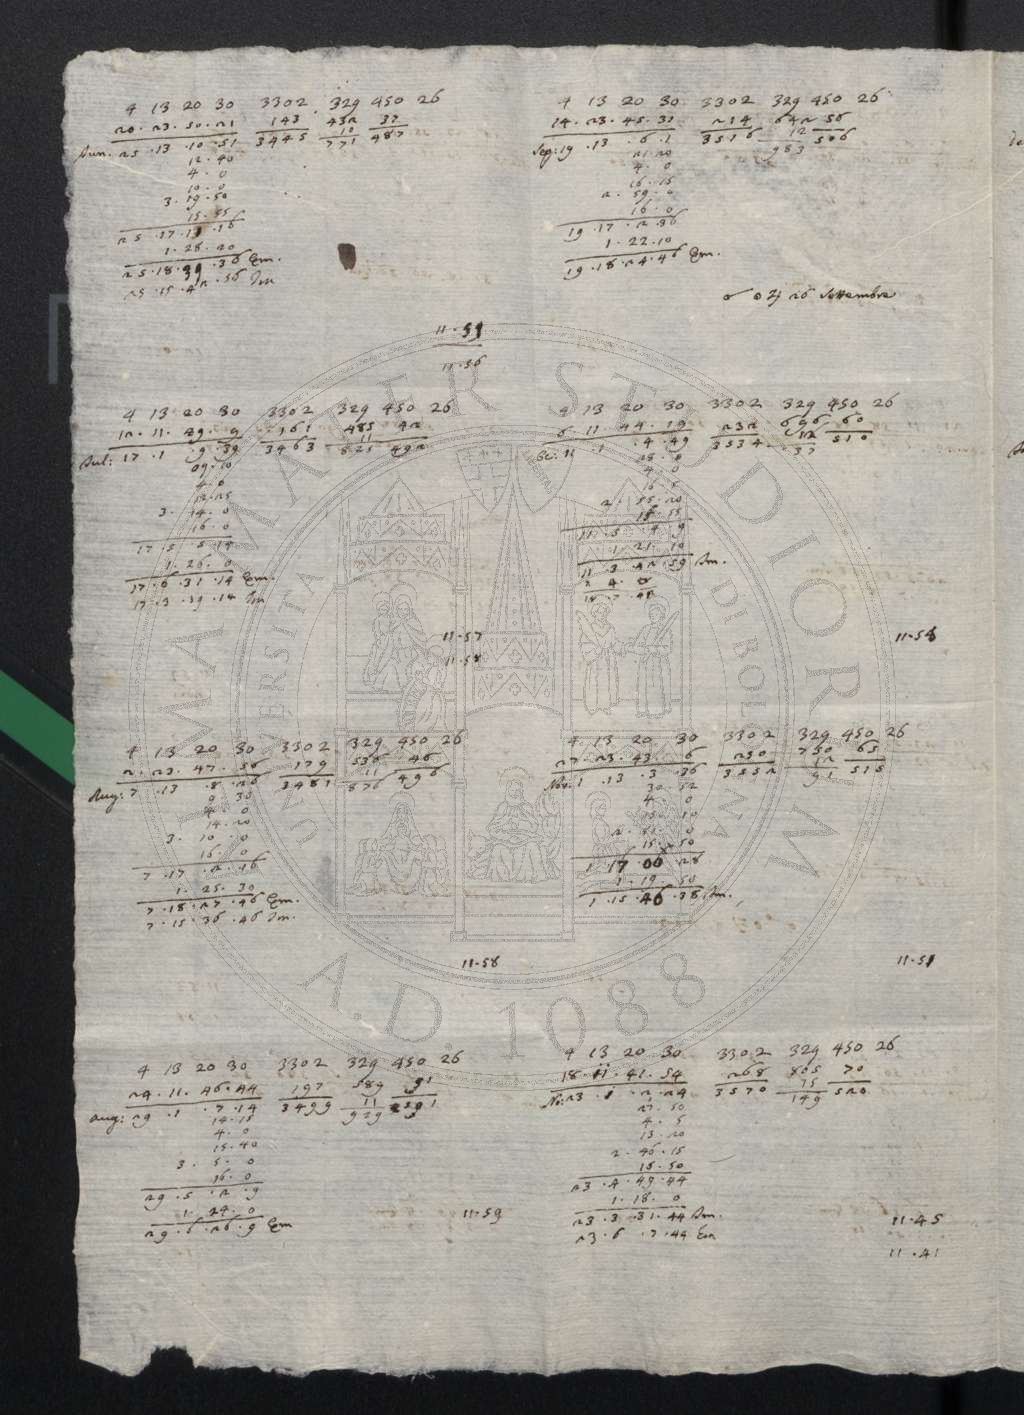 4 13 20 30 3302 329 450 26
20·23·50·21 143 432 37
Iun. 25·13·10·51 3445 10 487
771
12·40
4·0
10·0
3·19·50
15·55
25·17·13·16
1·28·20
Em.
Im
11·59
11·56
4 13 20 30 3302 329 450 26
12·11·29·9 161 485 42
Iul: 17·1·9·39 3463 11 492
825
09·10
4·0
12·25
3·14·0
16·0
17·5·5·14
1·26·0
17·6·31·14 Em.
17·3·39·14 Im
11·57
11·58
4 13 20 30 3302 329 450 26
2·23·47·56 179 536 46
Aug: 7·13·8·26 3481 11 496
876
0·30
4·0
14·20
3·10·0
16·0
7·17·2·16
1·25·30
7·18·27·46 Em.
7·15·36·46 Im.
11·58
4 13 20 30 3302 329 450 26
24·11·46·44 197 589
Aug: 29·1·7·14 3499 11
929
14·15
4·0
15·40
3·5·0
16·0
29·5·2·9
1·24·0
29·6·26·9 Em
11·59
4 13 20 30 3302 329 450 26
14·23·45·31 214 642 56
Sep: 19·13·6·1 3516 12 506
983
21·20
4·0
16·15
2·59·0
16·0
19·17·2·36
1·22·10
19·18·24·46 Em.
☌ ☉ ♃ 26 Settembre
4 13 20 30 3302 329 450 26
6·11·44·19 232 696 60
3534 12 510
37
28·0
4·0
16·5
2·55·20
15·55
11·5·4·9
1·21·10
11·3·42·59 Im.
11·54
4 13 20 30 3302 329 450 26
27·23·43·6 250 750 65
Nov: 1·13·3·36 3552 12 515
91
30·52
4·0
15·10
2·51·0
15·50
1·17·00·28
1·19·50
1·15·46·38 Im.
11·51
4 13 20 30 3302 329 450 26
18·11·41·54 268 805 70
No: 23·1·2·24 3570 15 520
149
27·50
4·5
13·20
2·46·15
15·50
23·4·49·44
1·18·0
23·3·31·44 Im.
23·6·7·44 Em
11·45
11·41
ALMA MATER STUDIORUM
UNIVERSITAS DI BOLOGNA
A.D. 1088